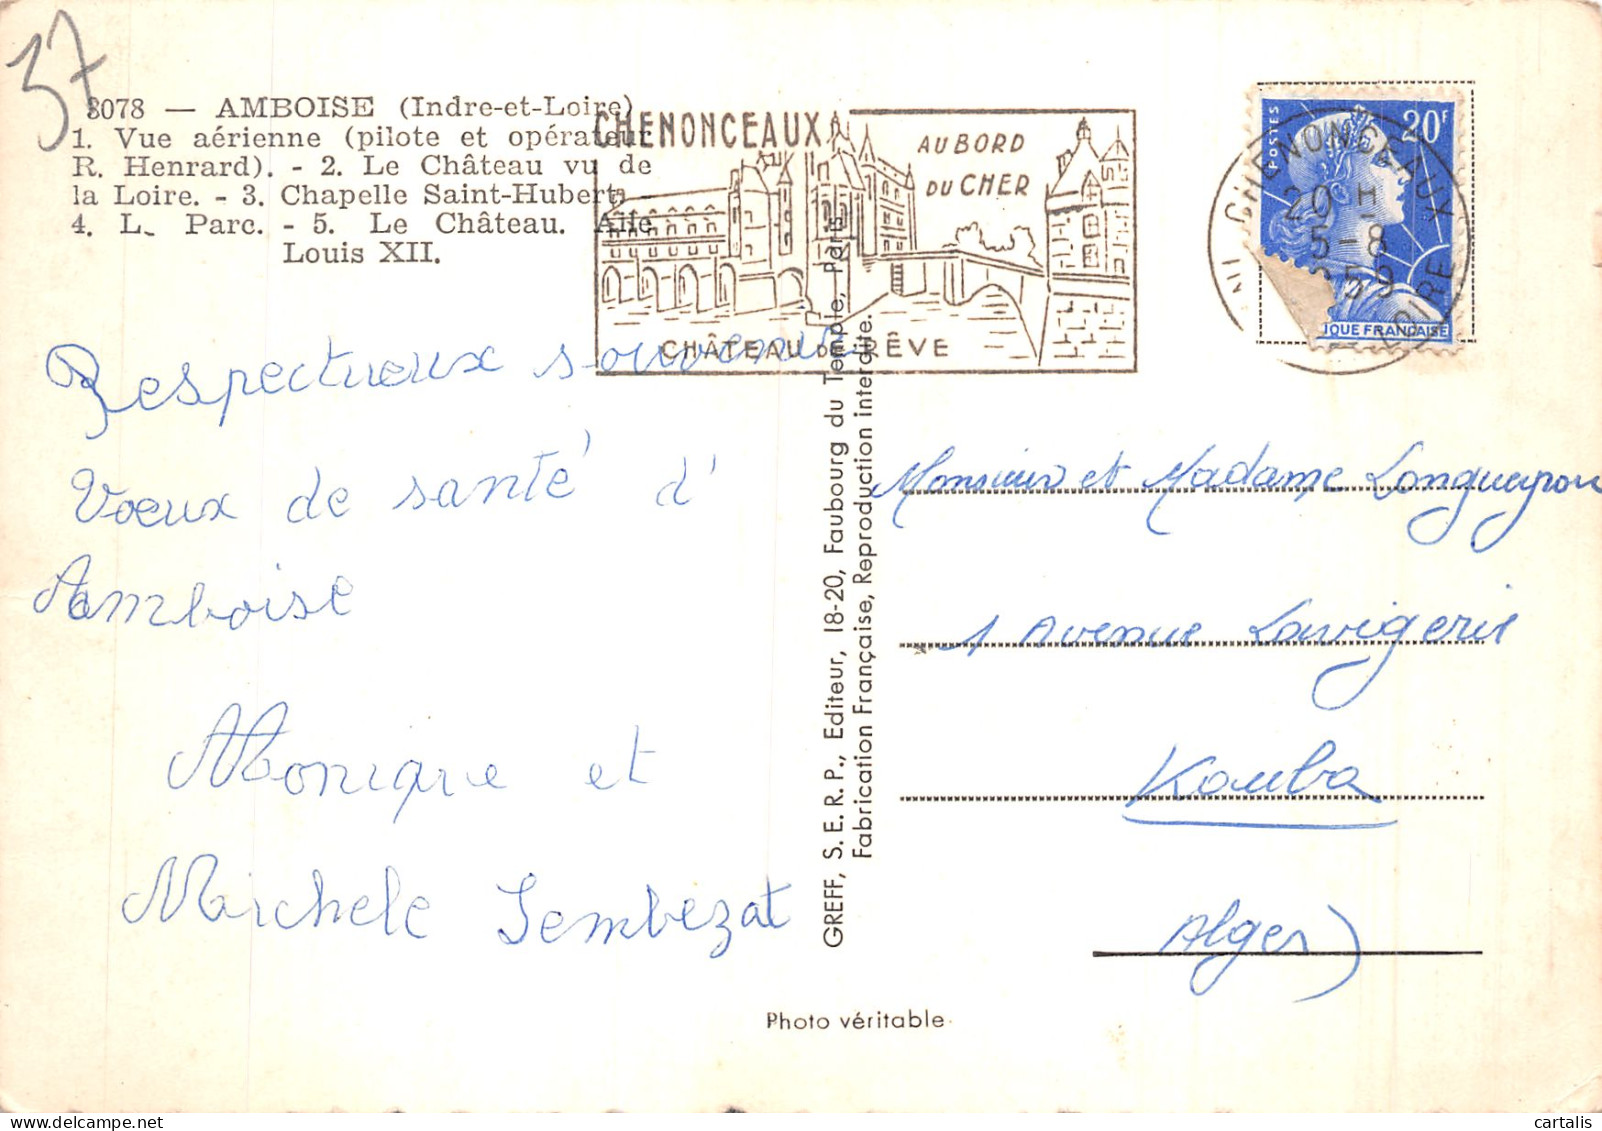 37
3078 — AMBOISE (Indre-et-Loire)
1. Vue aérienne (pilote et opérateur
R. Henrard). - 2. Le Château vu de
la Loire. - 3. Chapelle Saint-Hubert
4. L. Parc. - 5. Le Château. Aile
Louis XII.
CHENONCEAUX
AU BORD
DU CHER
CHÂTEAU DE RÊVE
POSTES
20F
IQUE FRANÇAISE
CHENONCEAUX
20 H
5-8
59
LOIRE
Respectueux souvenir
Vœux de santé d'
Amboise
Monique et
Michele Jembezat
GREFF, S.E.R.P., Editeur, 18-20, Faubourg du Temple, Paris
Fabrication Française, Reproduction interdite.
Monsieur et Madame Longueyrou
1 Avenue Lavigerie
Kouba
Alger)
Photo véritable
cartalis delcampe.net